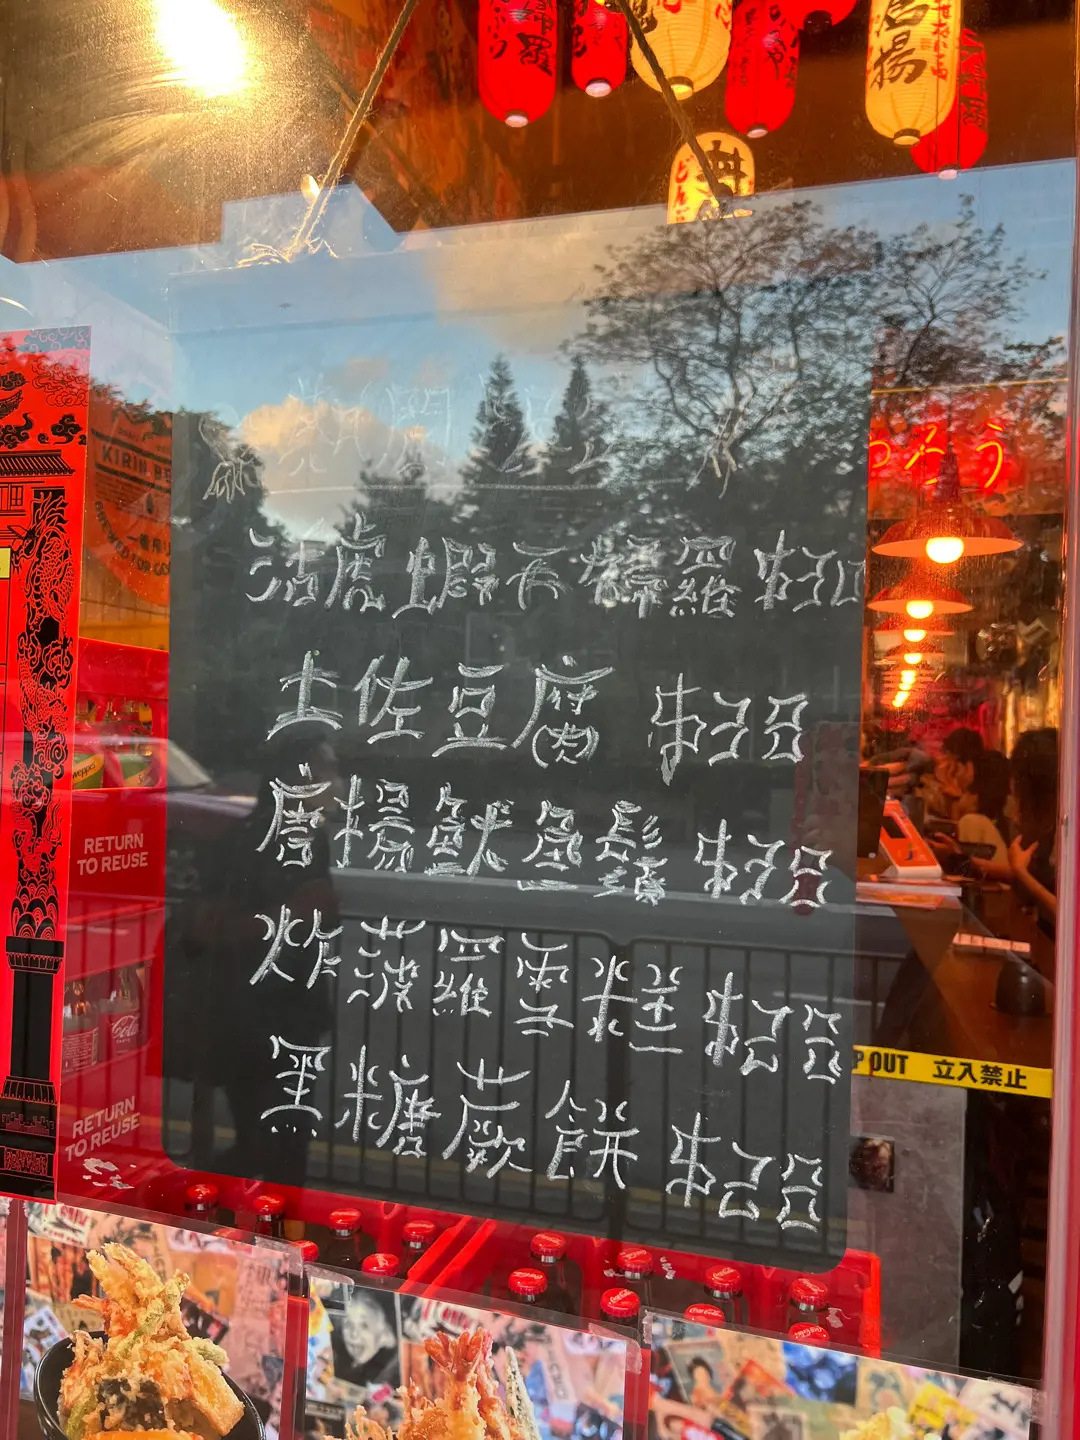 唐揚
丼
どんぶ
KIRIN BE
沽虎蝦天婦羅 $30
土佐豆腐 $28
唐揚魷魚鬚 $38
炸菠羅雪糕 $28
黑糖蕨餅 $28
RETURN
TO REUSE
RETURN
TO REUSE
P OUT 立入禁止